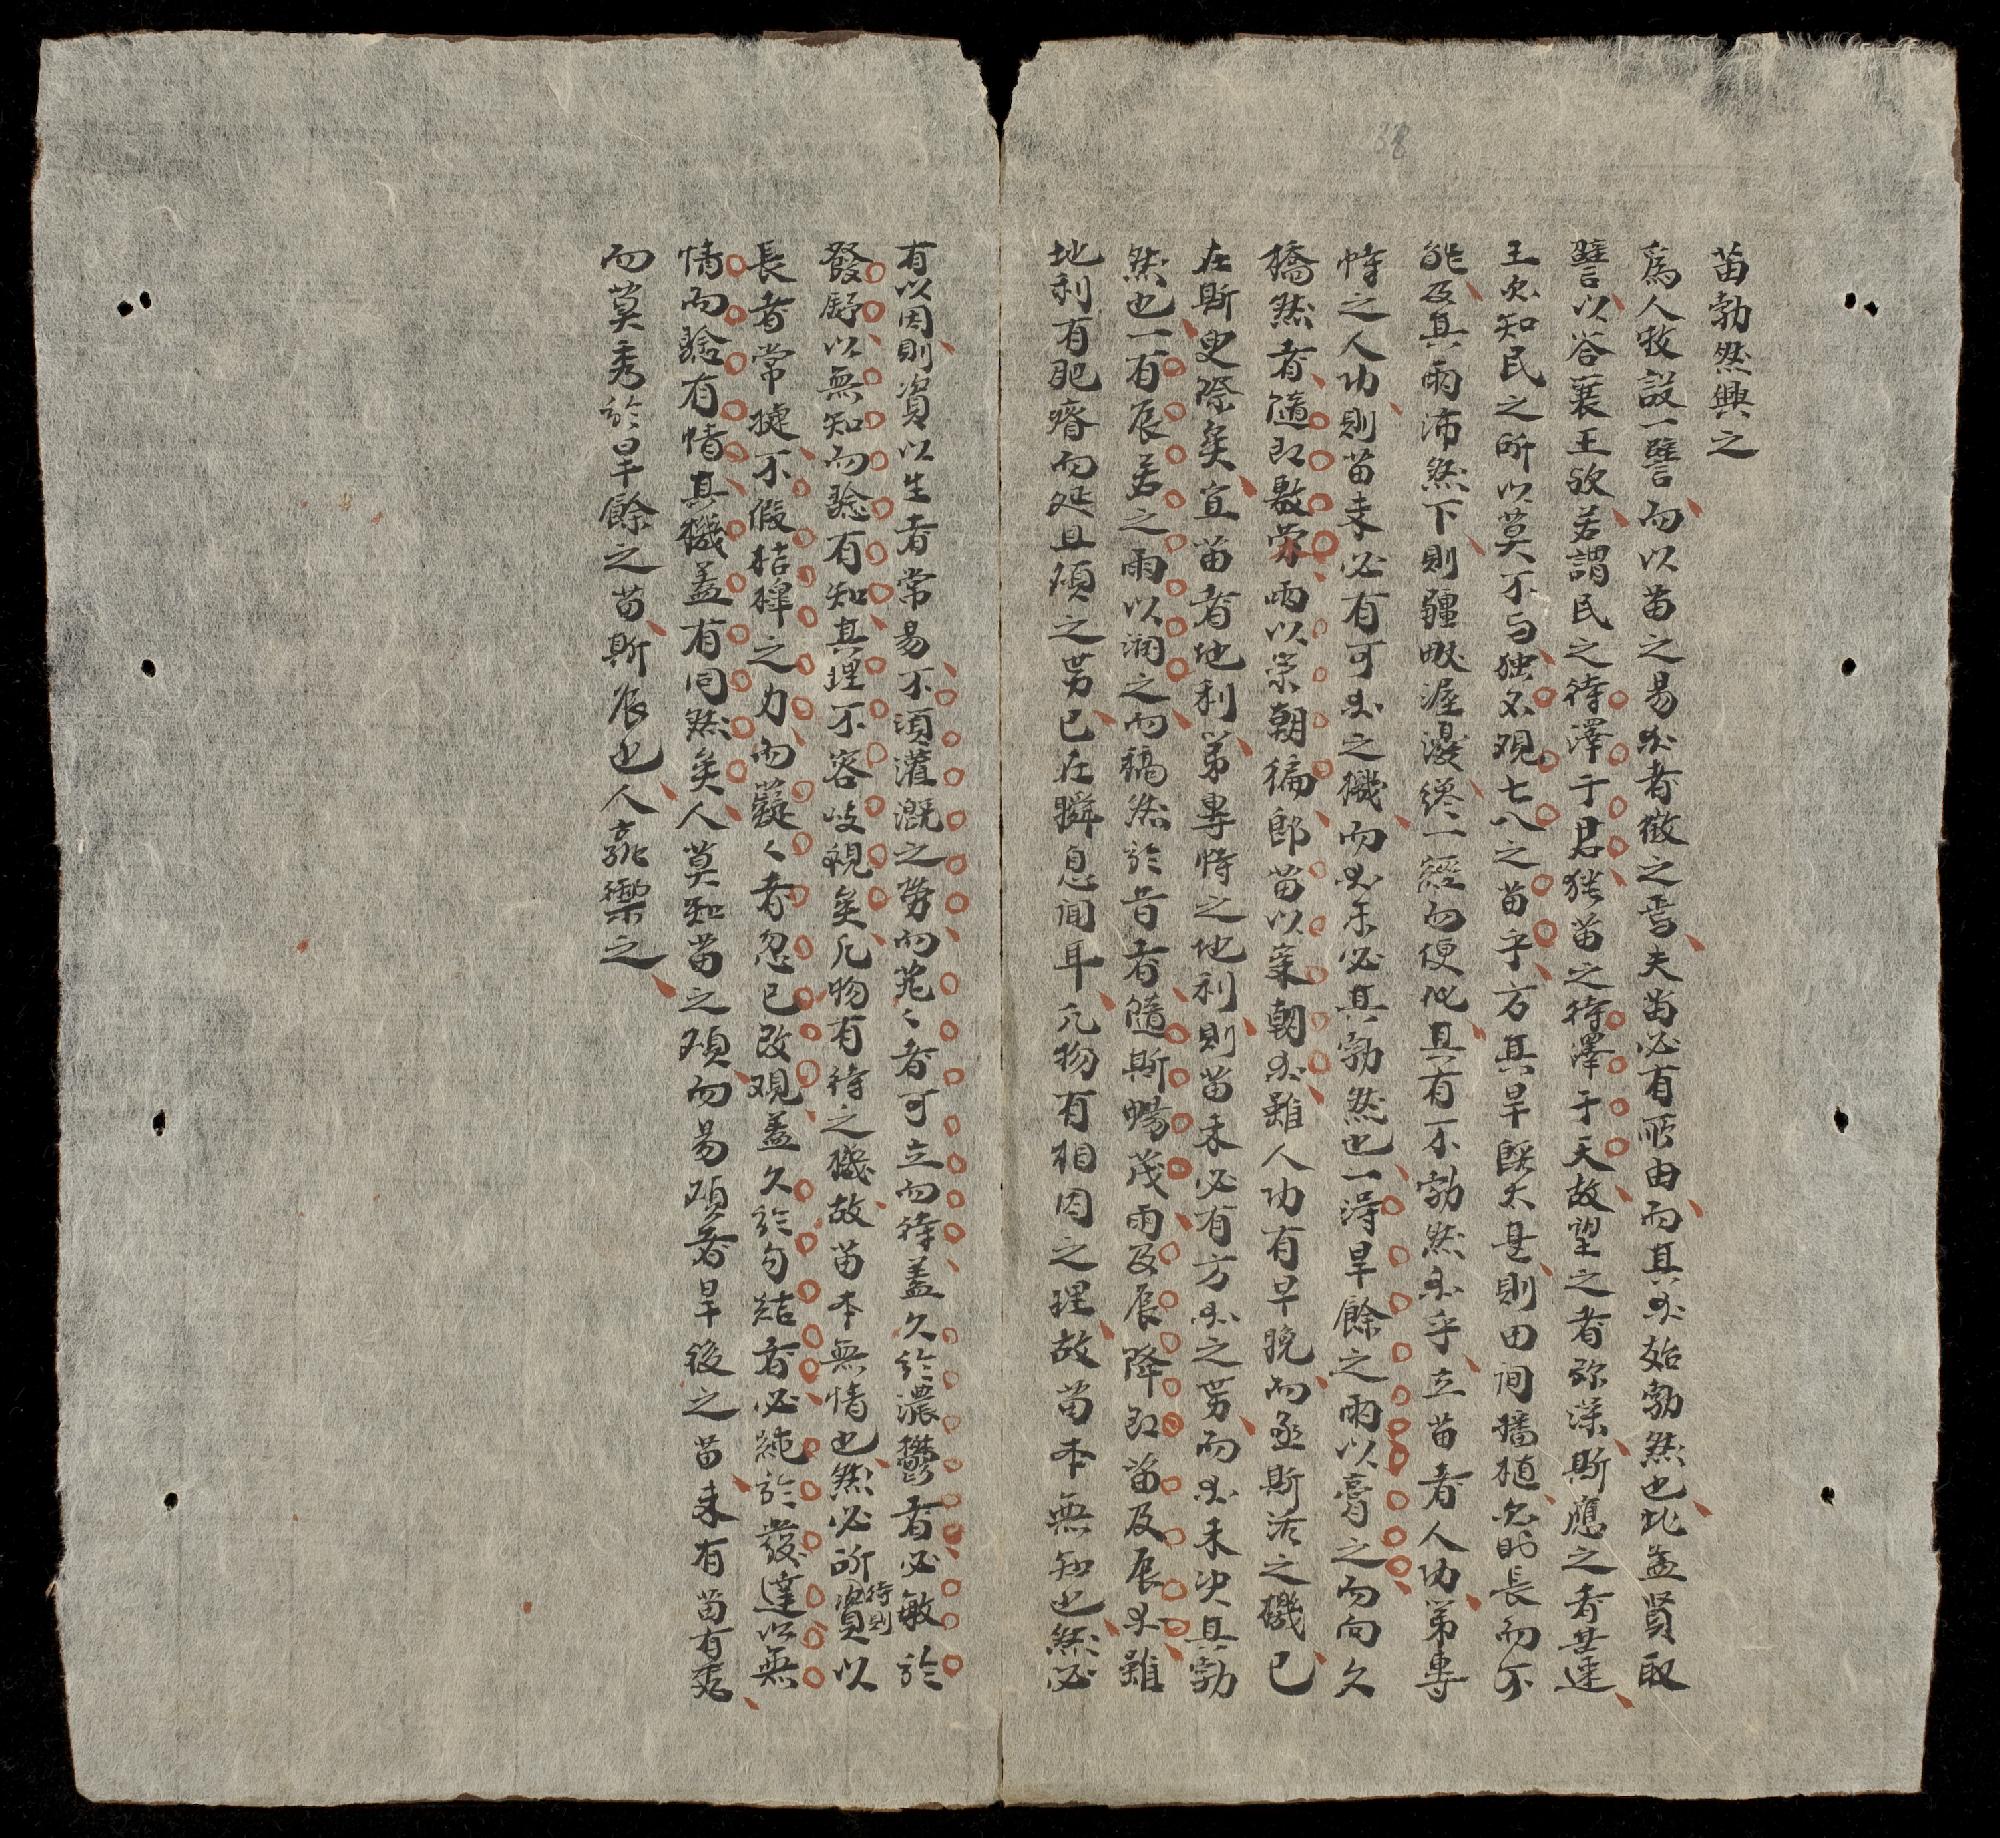 38
苗勃然興之
爲人牧設一譬而以苗之易兴者徵之焉夫苗必有所由而其兴始勃然也北孟賢取
譬以答襄王欤若謂民之待澤于君猶苗之待澤于天故望之者弥深斯應之者甚速
王忽知民之所以莫不与独不观七八之苗乎方其旱既太甚則田间播植忽时長而不
能及其雨沛然下則疆畎渥漫總一經而便似具有不勃然兴乎立苗者人功第專
恃之人功則苗未必有可兴之機而兴未必其勃然也一淂旱餘之雨以膏之而向久
槁然者隨即敷榮雨以崇朝徧即苗以来朝兴雖人功有早晚而亟斯活之機已
在斯臾際矣宜苗者地利第專恃之地利則苗未必有方兴之势而兴未决其勃
然也一有辰若之雨以润之而稿然於昔者隨斯暢茂雨及辰降即苗及辰兴雖
地利有肥瘠而延且须之势已在瞬息间耳凡物有相因之理故苗本無知也然必
有以因則資以生者常易不須灌溉之势而芃〻者可立而待盖久於濃鬱者必敏於
發舒以無知而騐有知其理不容歧視矣凡物有待之機故苗本無情也然必所待則資以
長者常捷不假桔槔之力而薿〻者忽已改观盖久於勾結者必純於發達以無
情而騐有情其機盖有同然矣人莫知苗之碩而易碩者旱後之苗未有苗有秀
而莫秀於旱餘之苗斯辰也人孰禦之